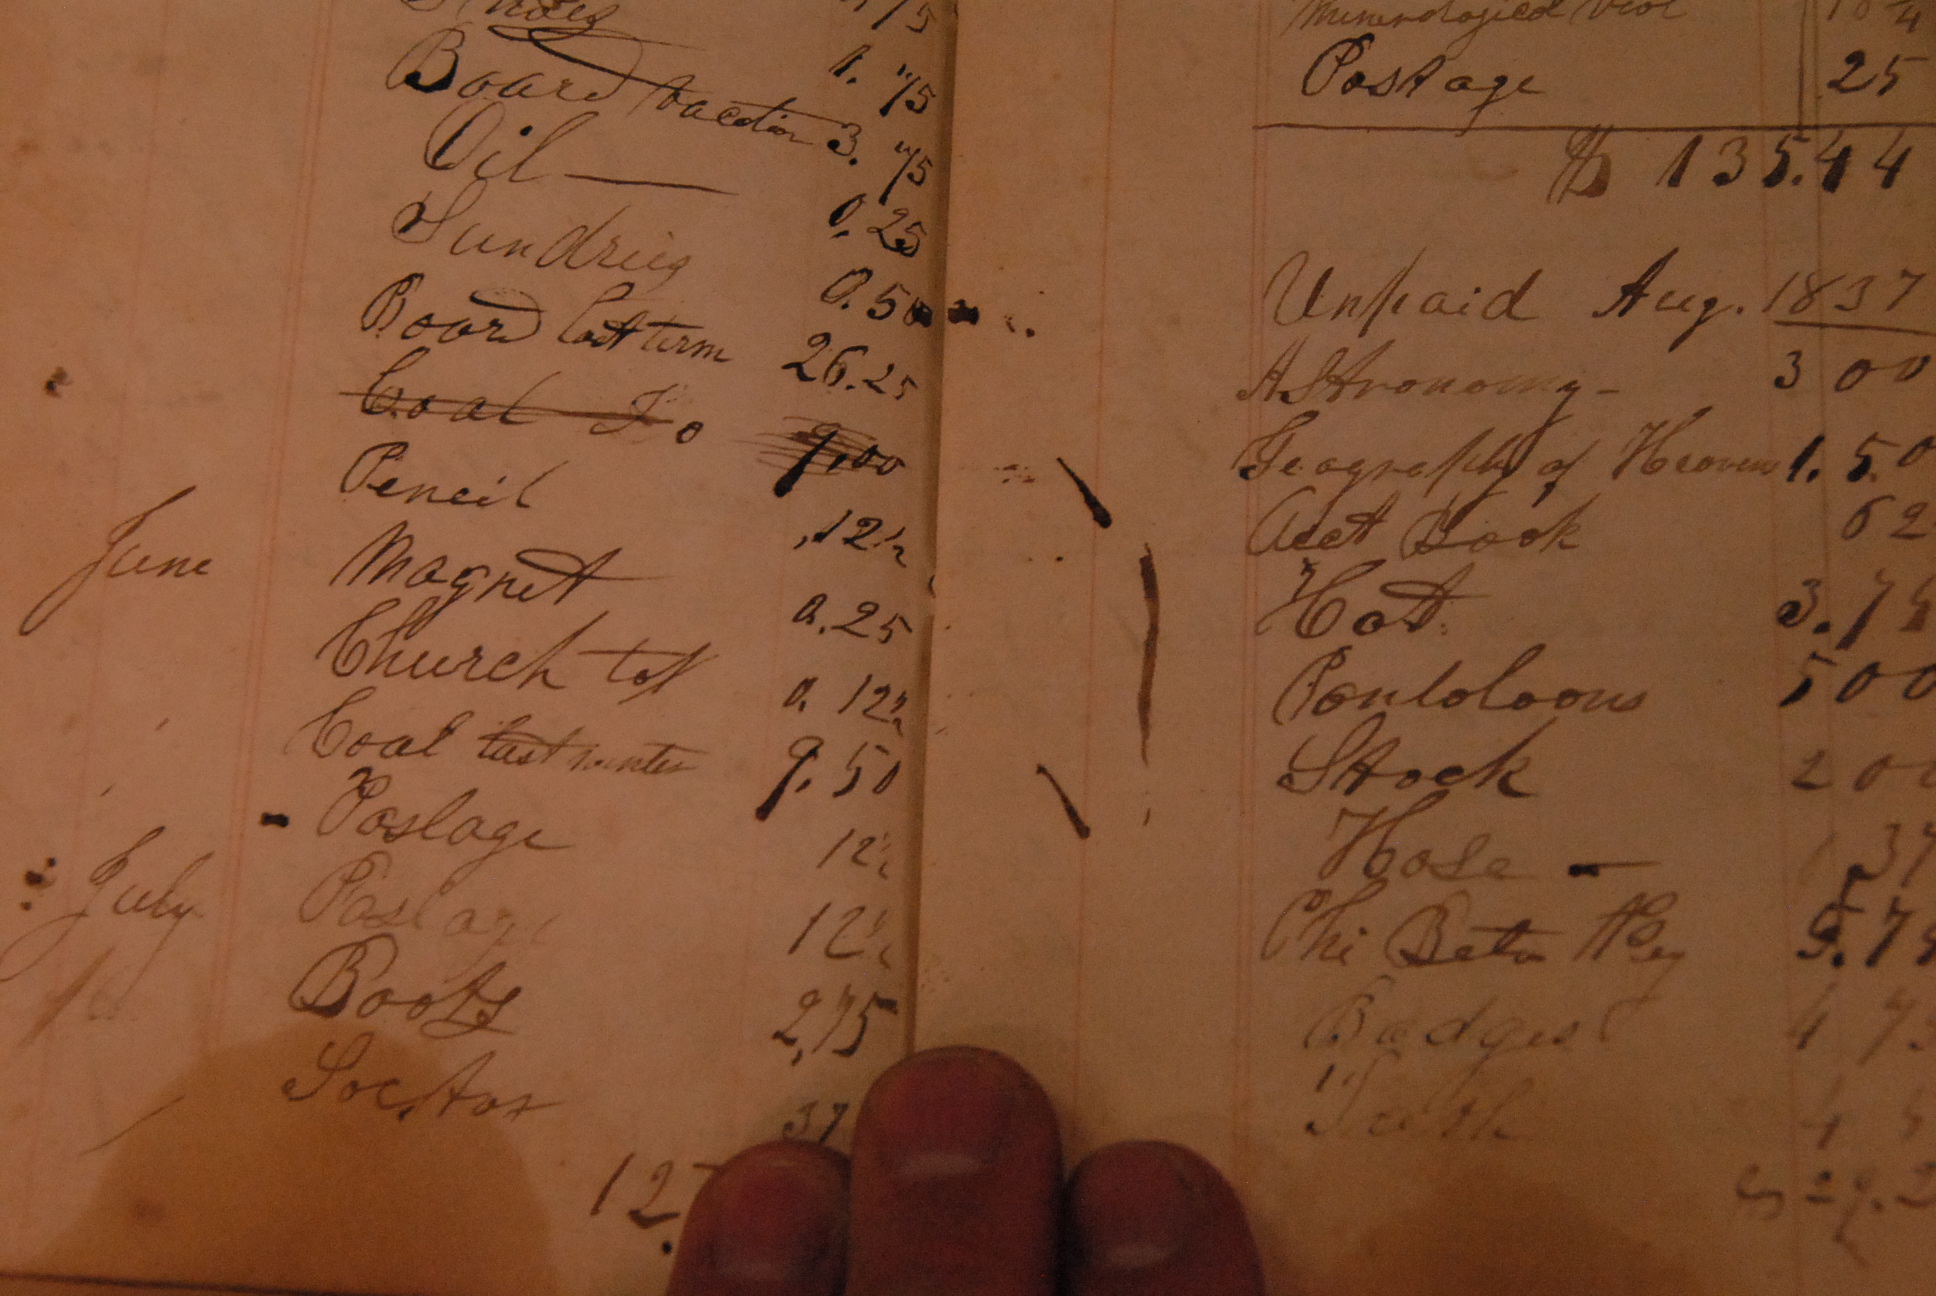 1.75
Board vacation 3.75
Oil — 0.25
Sundries 0.50
Board last term 26.25
Coal Do 9.00
Pencil .12½
June Magnet 0.25
Church tax 0.12½
Coal last winter 9.50
Postage 12½
July Postage 12½
Boots 2,75
Soc. tax 37
12.
Postage 25
$ 135.44
Unpaid Aug. 1837
Astronomy - 3 00
Geography of Heavens 1.50
Acct Book 62
Hat 3.75
Pantaloons 5 00
Stock 2 00
Hose — 1.37
Phi Beta Key 5.75
Badges 4 75